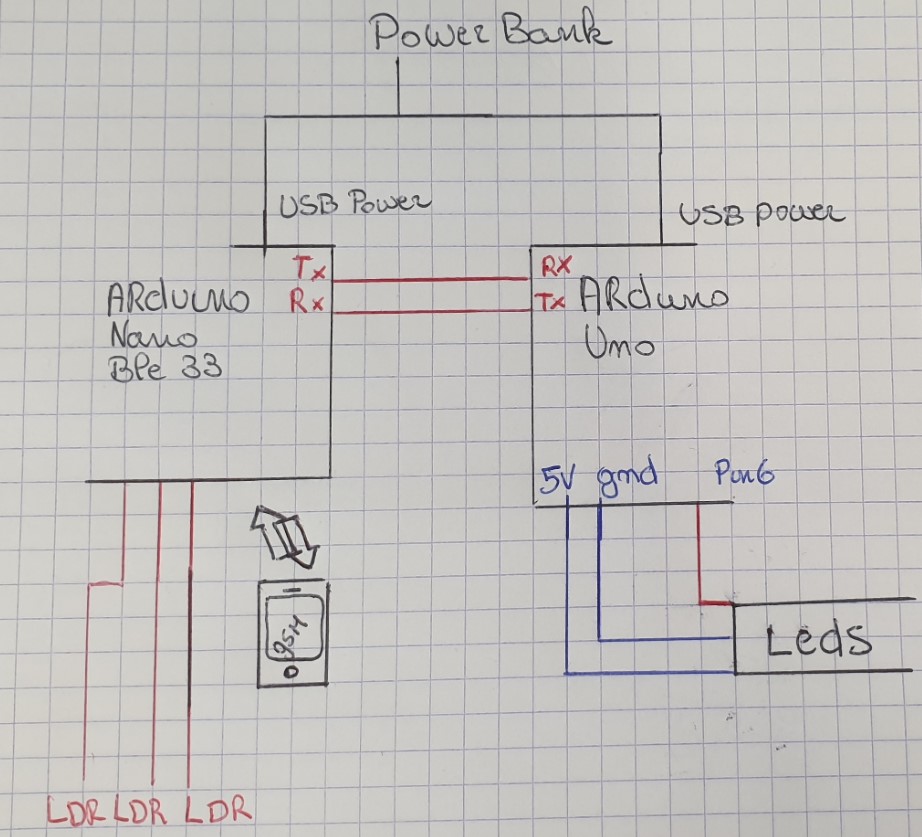 Power Bank
USB Power
USB power
Tx
Rx
RX
Tx
ARduino
Nano
Ble 33
ARduno
Uno
5V gnd Pin6
Leds
LDR LDR LDR